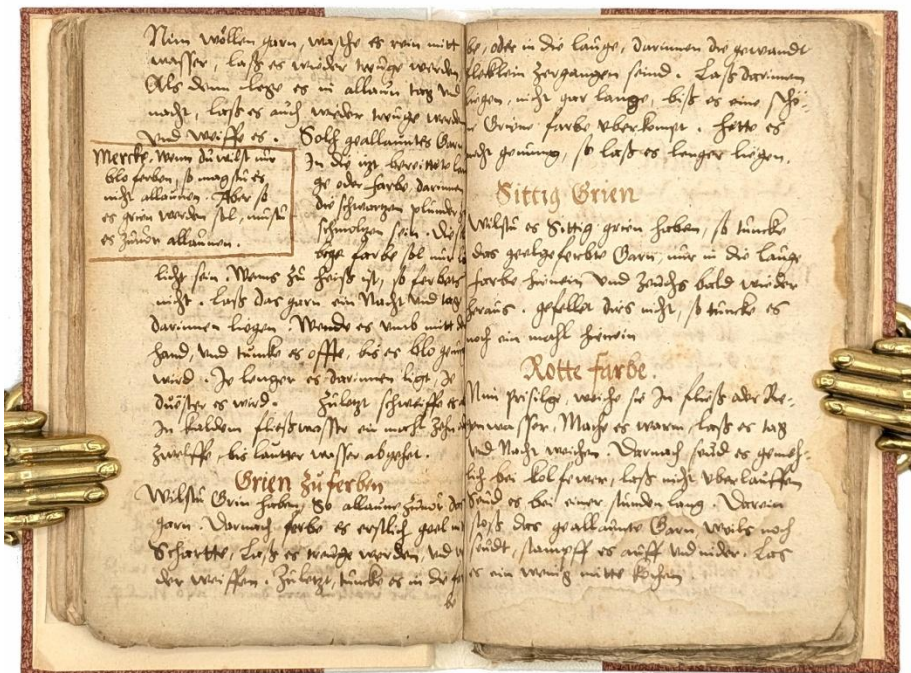 Nim wöllen garn, wasche es rein mitt
wasser, laß es wieder treüge werden
Als denn lege es in allaun tag vnd
nacht, laß es auch wieder treüge werden
Vnd weiffe es. Solch geallauntes Garn
Mercke, Wenn du wilst nur
blo ferben, so magstu es
nicht allaunen. Aber so
es grien werden sol, mustu
es zuuor allaunen.
In die itzt bereittete lau
ge oder farbe darinnen
die schwartzen plunder
schmoltzen sein. Die
farbe sol nur
licht sein. Wenns zu heiß ist, so ferbets
nicht. Laß das garn ein Nacht vnd tag
darinnen liegen. Wende es vmb mitt d
hand, vnd tuncke es offte, bis es blo genu
wird. Je lenger es darinnen ligt, Je
düster es wird. Zuletzt schweiffe es
In kaldem fließwasser ein mahl zehn
zwelffe, bis lautter wasser abgehet.
Grien Zu ferben
Wilstu Grin haben, So allaune zuuor das
garn. Darnach ferbe es erstlich geel mi
Schartte, Laß es treuge werden, vnd w
der weiffen. Zuletzt, tuncke es in die
be
be, oder in die lauge, darinnen die gewandt
flecklein zergangen seind. Laß darinnen
liegen, nicht gar lange, biß es eine schö-
ne Griene farbe vberkompt. Hette es
nicht genung, so laß es lenger liegen.
Sittig Grien
Wilstu es Sittig grien haben, so tuncke
das geelgeferbte Garn, nur in die lauge
farbe hienein vnd zeuchs bald wieder
heraus. gefellet dirs nicht, so tuncke es
noch ein mahl hienein
Rotte farbe.
Nim prisilge, weiche sie In fließ oder Re-
genwasser, Mache es warm, laß es tag
vnd Nacht weichen. Darnach seud es gemeh-
lich bei kolfewer, laß nicht vberlauffen
Seud es bei einer stunden lang. Darein
stoß das geallaunte Garn, weils noch
seudt, stampff es auff vnd nider. Las
es ein wenig mitte kochen